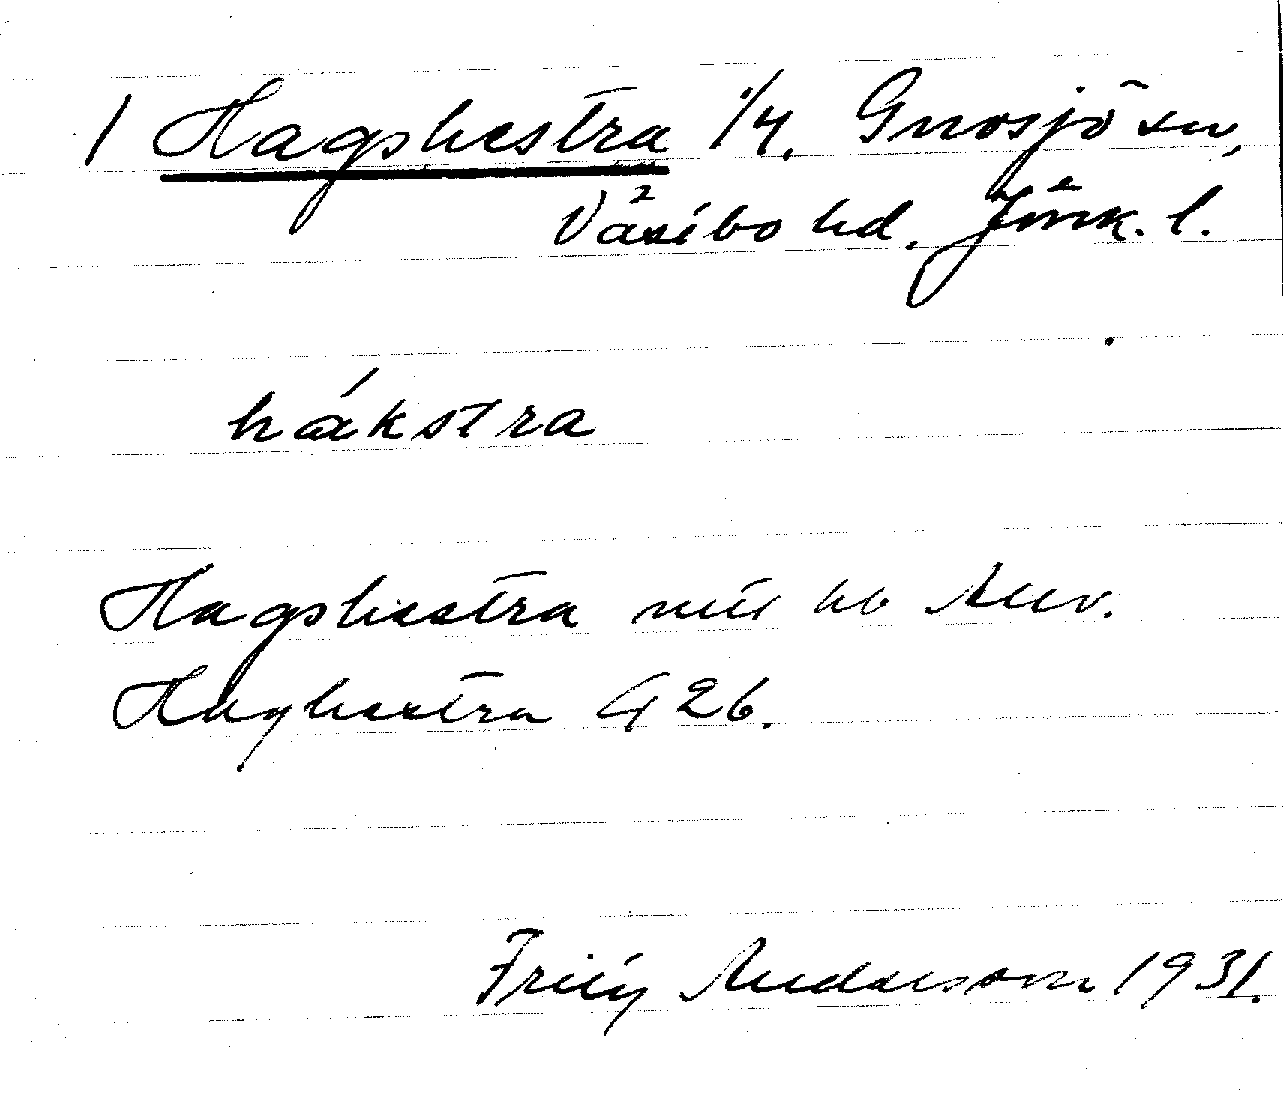 1 Hagshestra 1/4. Gnosjö sn,
Västbo hd. Jönk. l.
hákstra
Hagshestra
Haghestra G 26.
Andersson 1931.